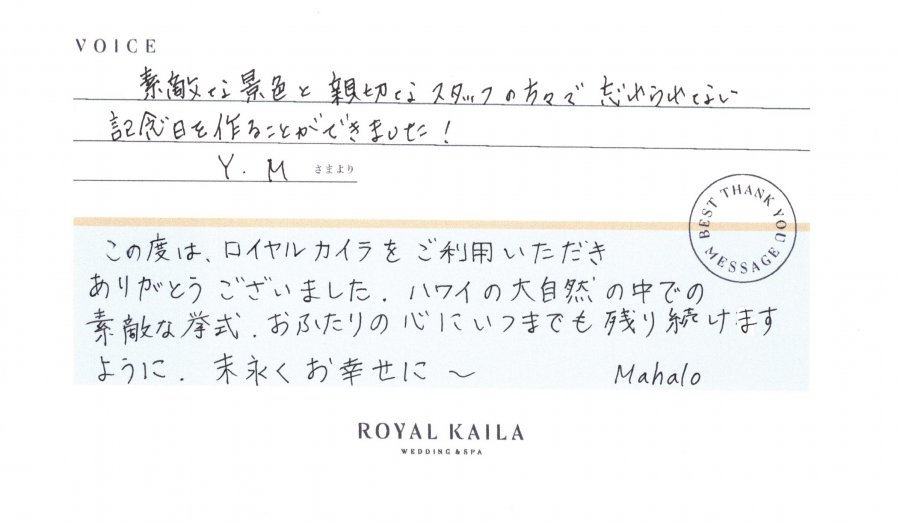 VOICE
素敵な景色と親切なスタッフの方々で忘れられない
記念日を作ることができました！
Y.M さまより
BEST THANK YOU MESSAGE
この度は、ロイヤルカイラをご利用いただき
ありがとうございました．ハワイの大自然の中での
素敵な挙式．おふたりの心にいつまでも残り続けます
ように．末永くお幸せに〜 Mahalo
ROYAL KAILA
WEDDING & SPA